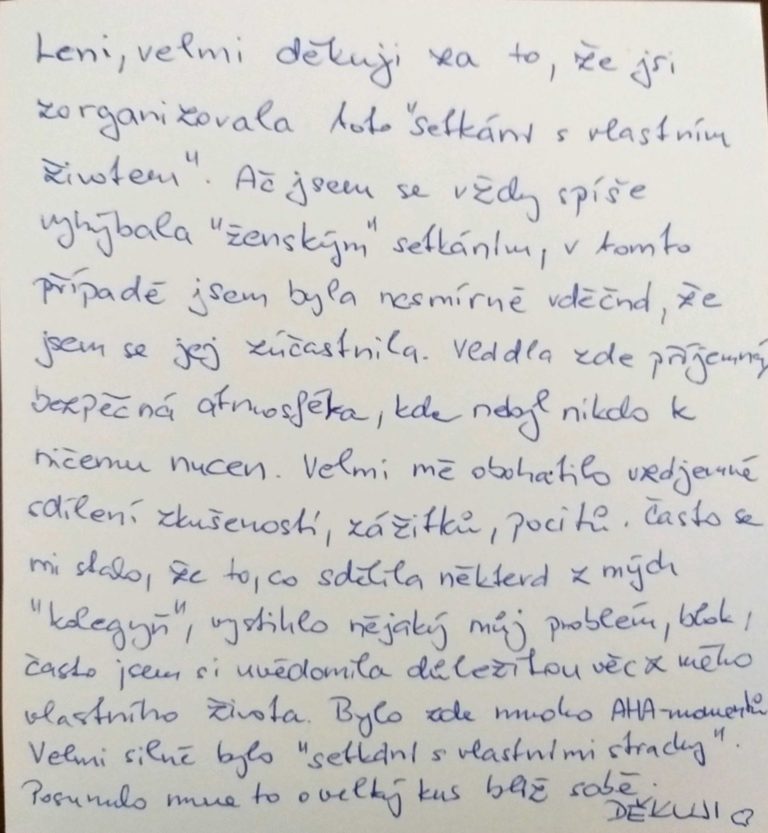 Leni, velmi děkuji za to, že jsi
zorganizovala toto "setkání s vlastním
životem". Ač jsem se vždy spíše
vyhýbala "ženským" setkáním, v tomto
případě jsem byla nesmírně vděčná, že
jsem se jej zúčastnila. Vládla zde příjemná,
bezpečná atmosféra, kde nebyl nikdo k
ničemu nucen. Velmi mě obohatilo vzájemné
sdílení zkušeností, zážitků, pocitů. Často se
mi stalo, že to, co sdělila některá z mých
"kolegyň", vystihlo nějaký můj problém, blok,
často jsem si uvědomila důležitou věc z mého
vlastního života. Bylo zde mnoho AHA-momentů.
Velmi silné bylo "setkání s vlastními strachy".
Posunulo mne to o velký kus blíž sobě.
DĚKUJI ♡